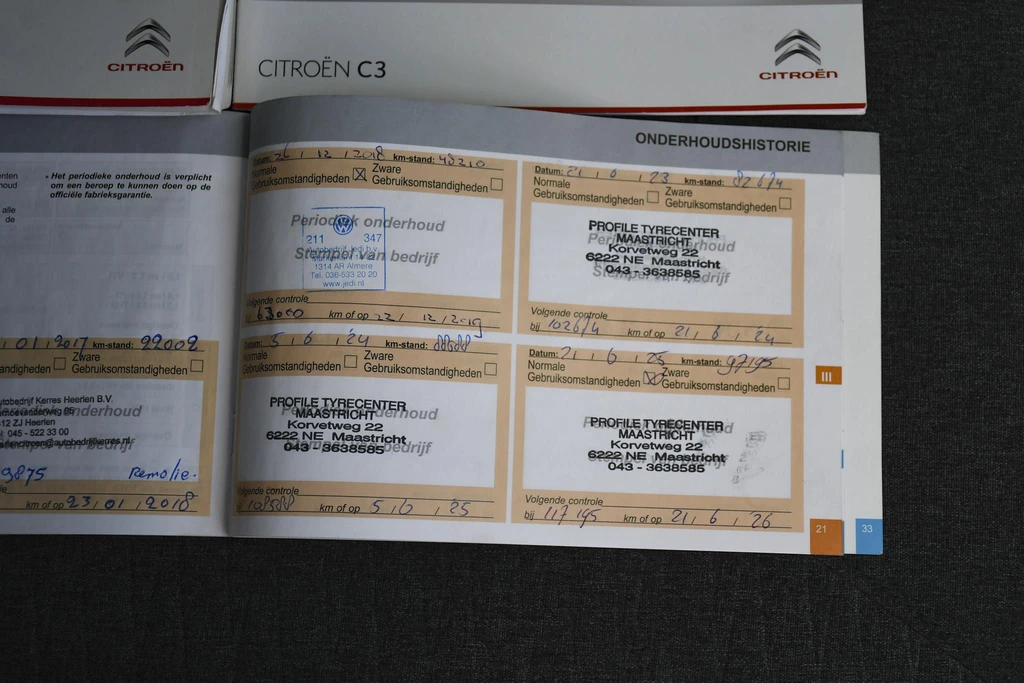 CITROËN
CITROËN C3
CITROËN
ONDERHOUDSHISTORIE
• Het periodieke onderhoud is verplicht
om een beroep te kunnen doen op de
officiële fabrieksgarantie.
alle
de
01 2017 km-stand: 22002
Zware
Gebruiksomstandigheden
Autobedrijf Kerres Heerlen B.V.
ZJ Heerlen
045 - 522 33 00
9875 Remolie.
km of op 23 , 01 , 2018
Datum: 26 / 12 / 2018 km-stand: 48210
Normale Zware
Gebruiksomstandigheden Gebruiksomstandigheden
Periodiek onderhoud
211 347
Autobedrijf Jedi b.v.
Stempel van bedrijf
1314 AR Almere
Tel. 036-533 20 20
www.jedi.nl
Volgende controle
bij 63000 km of op 22 / 12 / 2019
Datum: 21 , 6 , 23 km-stand: 82674
Normale Zware
Gebruiksomstandigheden Gebruiksomstandigheden
PROFILE TYRECENTER
MAASTRICHT
Korvetweg 22
6222 NE Maastricht
043 - 3638585
Volgende controle
bij 102674 km of op 21 , 6 , 24
Datum: 5 , 6 , 24 km-stand: 88588
Normale Zware
Gebruiksomstandigheden Gebruiksomstandigheden
PROFILE TYRECENTER
MAASTRICHT
Korvetweg 22
6222 NE Maastricht
043 - 3638585
Volgende controle
bij 108588 km of op 5 , 6 , 25
Datum: 21 , 6 , 25 km-stand: 97195
Normale Zware
Gebruiksomstandigheden Gebruiksomstandigheden
PROFILE TYRECENTER
MAASTRICHT
Korvetweg 22
6222 NE Maastricht
043 - 3638585
Volgende controle
bij 117195 km of op 21 , 6 , 26
III
21
33